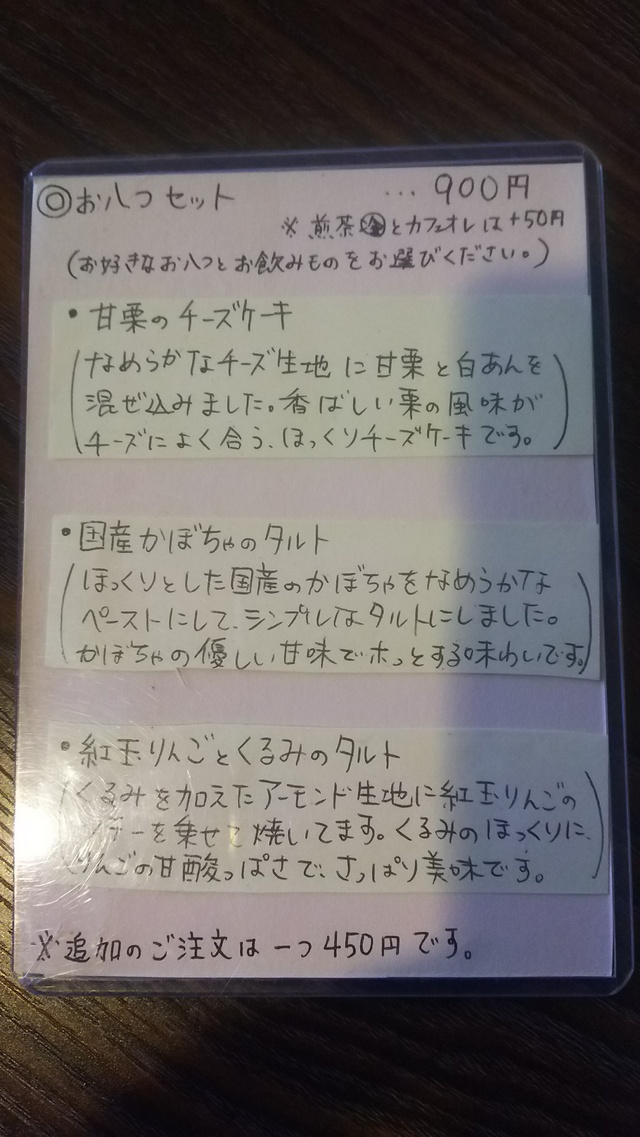 ◎お八つセット …900円
※煎茶とカフェオレは+50円
(お好きなお八つとお飲みものをお選びください。)
・甘栗のチーズケーキ
(なめらかなチーズ生地に甘栗と白あんを
混ぜ込みました。香ばしい栗の風味が
チーズによく合う、ほっくりチーズケーキです。)
・国産かぼちゃのタルト
(ほっくりとした国産のかぼちゃをなめらかな
ペーストにして、シンプルなタルトにしました。
かぼちゃの優しい甘味でホッとする味わいです。)
・紅玉りんごとくるみのタルト
(くるみを加えたアーモンド生地に紅玉りんごの
を乗せて焼いてます。くるみのほっくりに、
りんごの甘酸っぱさで、さっぱり美味です。)
※追加のご注文は一つ450円です。